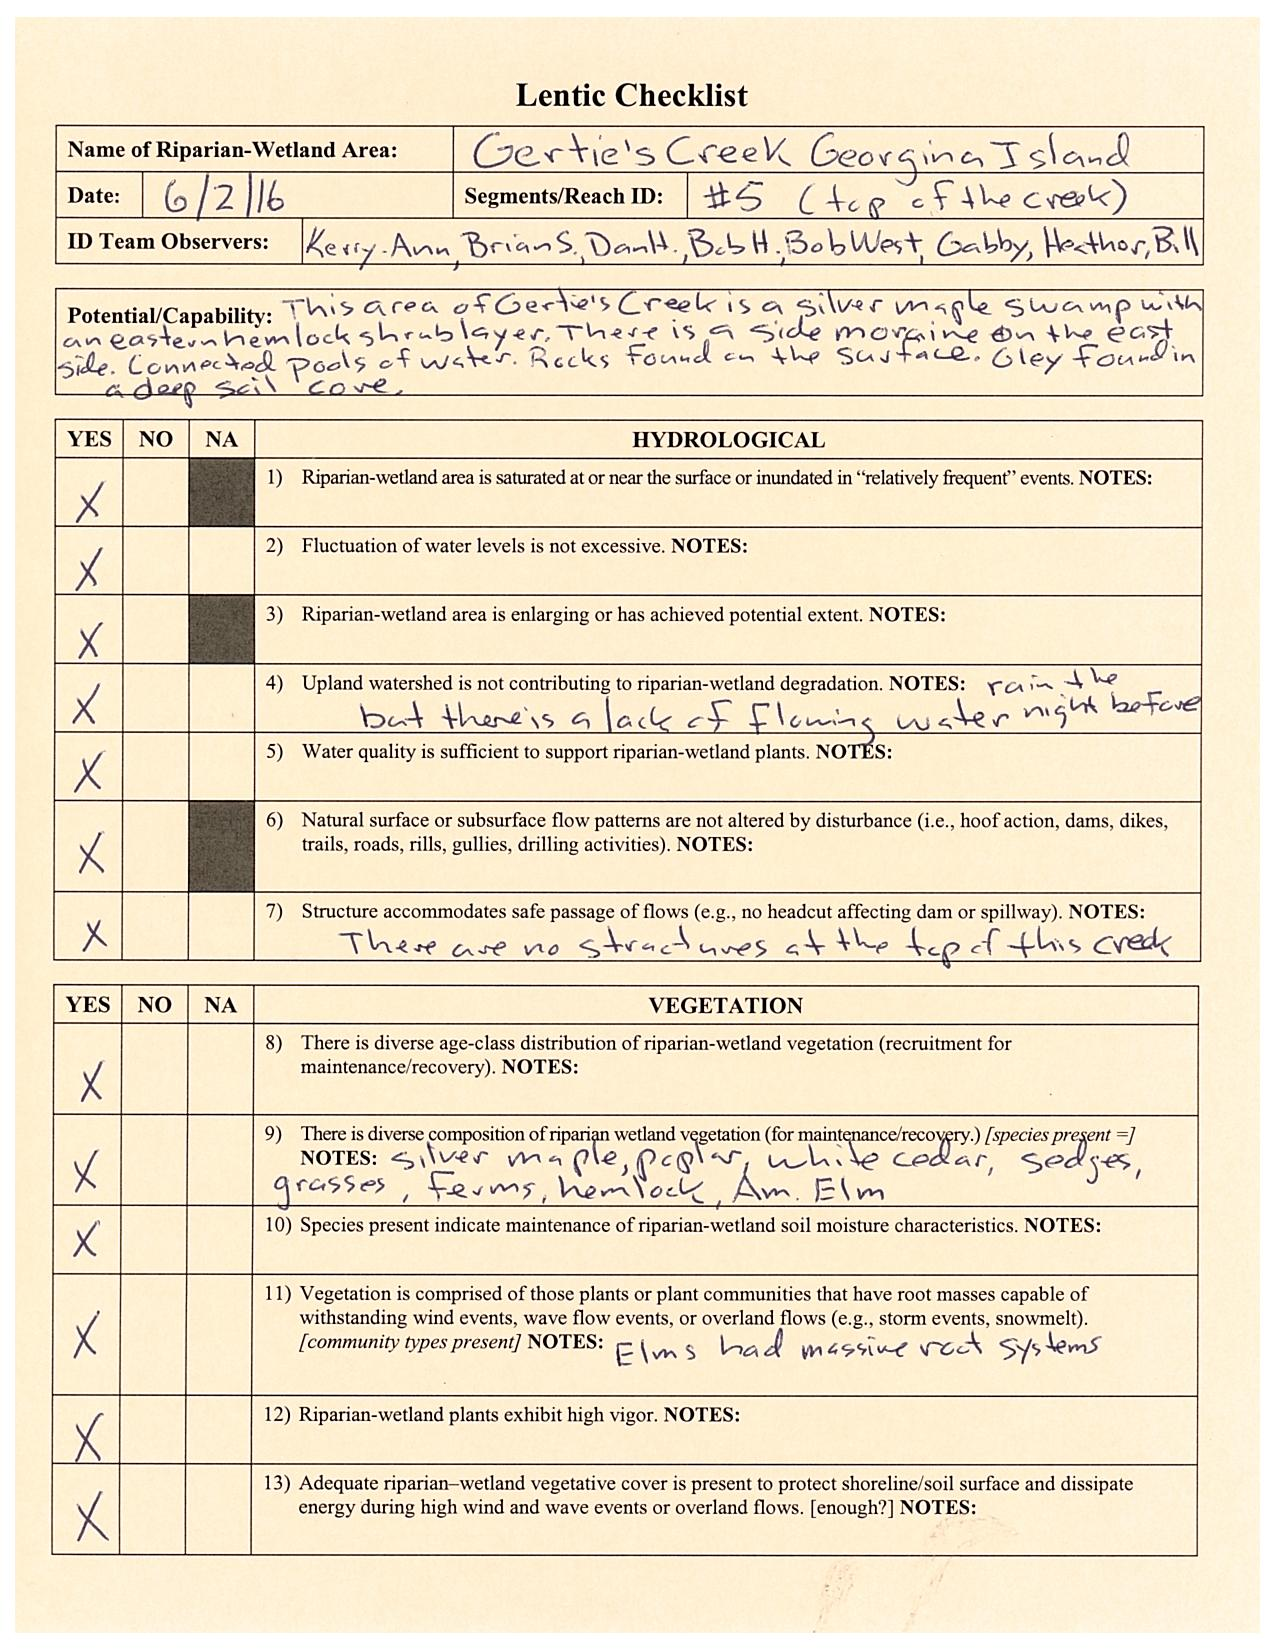 Lentic Checklist
Name of Riparian-Wetland Area: Gertie's Creek Georgina Island
Date: 6/2/16 Segments/Reach ID: #5 (top of the creek)
ID Team Observers: Kerry-Ann, Brian S., Dan H., Bob H., Bob West, Gabby, Heather, Bill
Potential/Capability: This area of Gertie's Creek is a silver maple swamp with
an eastern hemlock shrub layer. There is a side moraine on the east
side. Connected pools of water. Rocks found on the surface. Gley found in
a deep soil core.
YES NO NA HYDROLOGICAL
X 1) Riparian-wetland area is saturated at or near the surface or inundated in “relatively frequent” events. NOTES:
X 2) Fluctuation of water levels is not excessive. NOTES:
X 3) Riparian-wetland area is enlarging or has achieved potential extent. NOTES:
X 4) Upland watershed is not contributing to riparian-wetland degradation. NOTES: rain the
but there is a lack of flowing water night before
X 5) Water quality is sufficient to support riparian-wetland plants. NOTES:
X 6) Natural surface or subsurface flow patterns are not altered by disturbance (i.e., hoof action, dams, dikes,
trails, roads, rills, gullies, drilling activities). NOTES:
X 7) Structure accommodates safe passage of flows (e.g., no headcut affecting dam or spillway). NOTES:
There are no structures at the top of this creek
YES NO NA VEGETATION
X 8) There is diverse age-class distribution of riparian-wetland vegetation (recruitment for
maintenance/recovery). NOTES:
X 9) There is diverse composition of riparian wetland vegetation (for maintenance/recovery.) [species present =]
NOTES: silver maple, poplar, white cedar, sedges,
grasses, ferms, hemlock, Am. Elm
X 10) Species present indicate maintenance of riparian-wetland soil moisture characteristics. NOTES:
X 11) Vegetation is comprised of those plants or plant communities that have root masses capable of
withstanding wind events, wave flow events, or overland flows (e.g., storm events, snowmelt).
[community types present] NOTES: Elms had massive root systems
X 12) Riparian-wetland plants exhibit high vigor. NOTES:
X 13) Adequate riparian–wetland vegetative cover is present to protect shoreline/soil surface and dissipate
energy during high wind and wave events or overland flows. [enough?] NOTES: